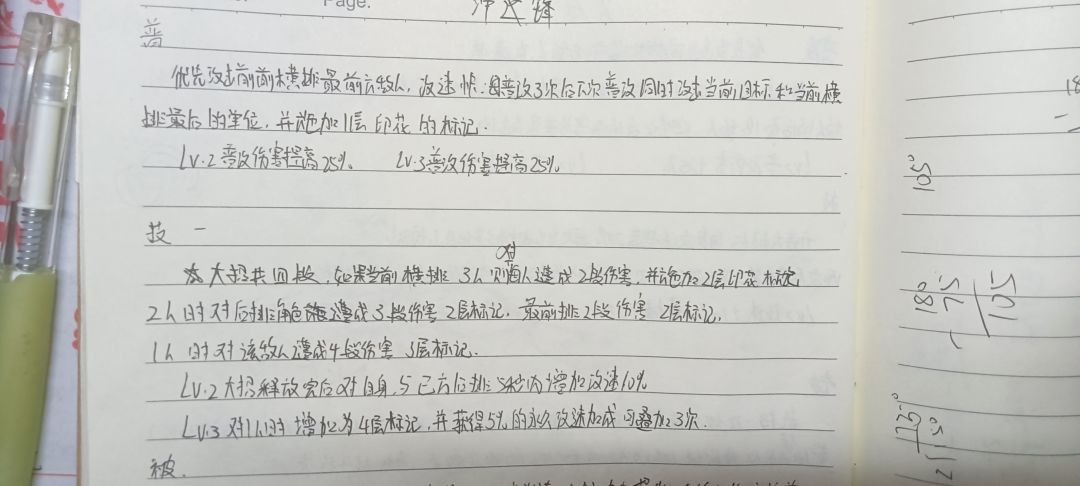 Page.
普
优先攻击前前横排最前方敌人,攻速快,每普攻3次后下次普攻同时攻击当前目标和当前横
排最后的单位,并施加1层印花的标记.
Lv.2 普攻伤害提高25%. Lv.3 普攻伤害提高25%.
技一
大招共四段,如果当前横排3人则对每人造成2段伤害,并施加2层印花标记
2人时对后排角色造成3段伤害2层标记,最前排2段伤害2层标记.
1人时对该敌人造成4段伤害3层标记.
Lv.2 大招释放完后对自身,与己方后排5秒内增加攻速10%
Lv.3 对1人时增加为4层标记,并获得5%的永久攻速加成可叠加3次.
被.
105°
180
75
105